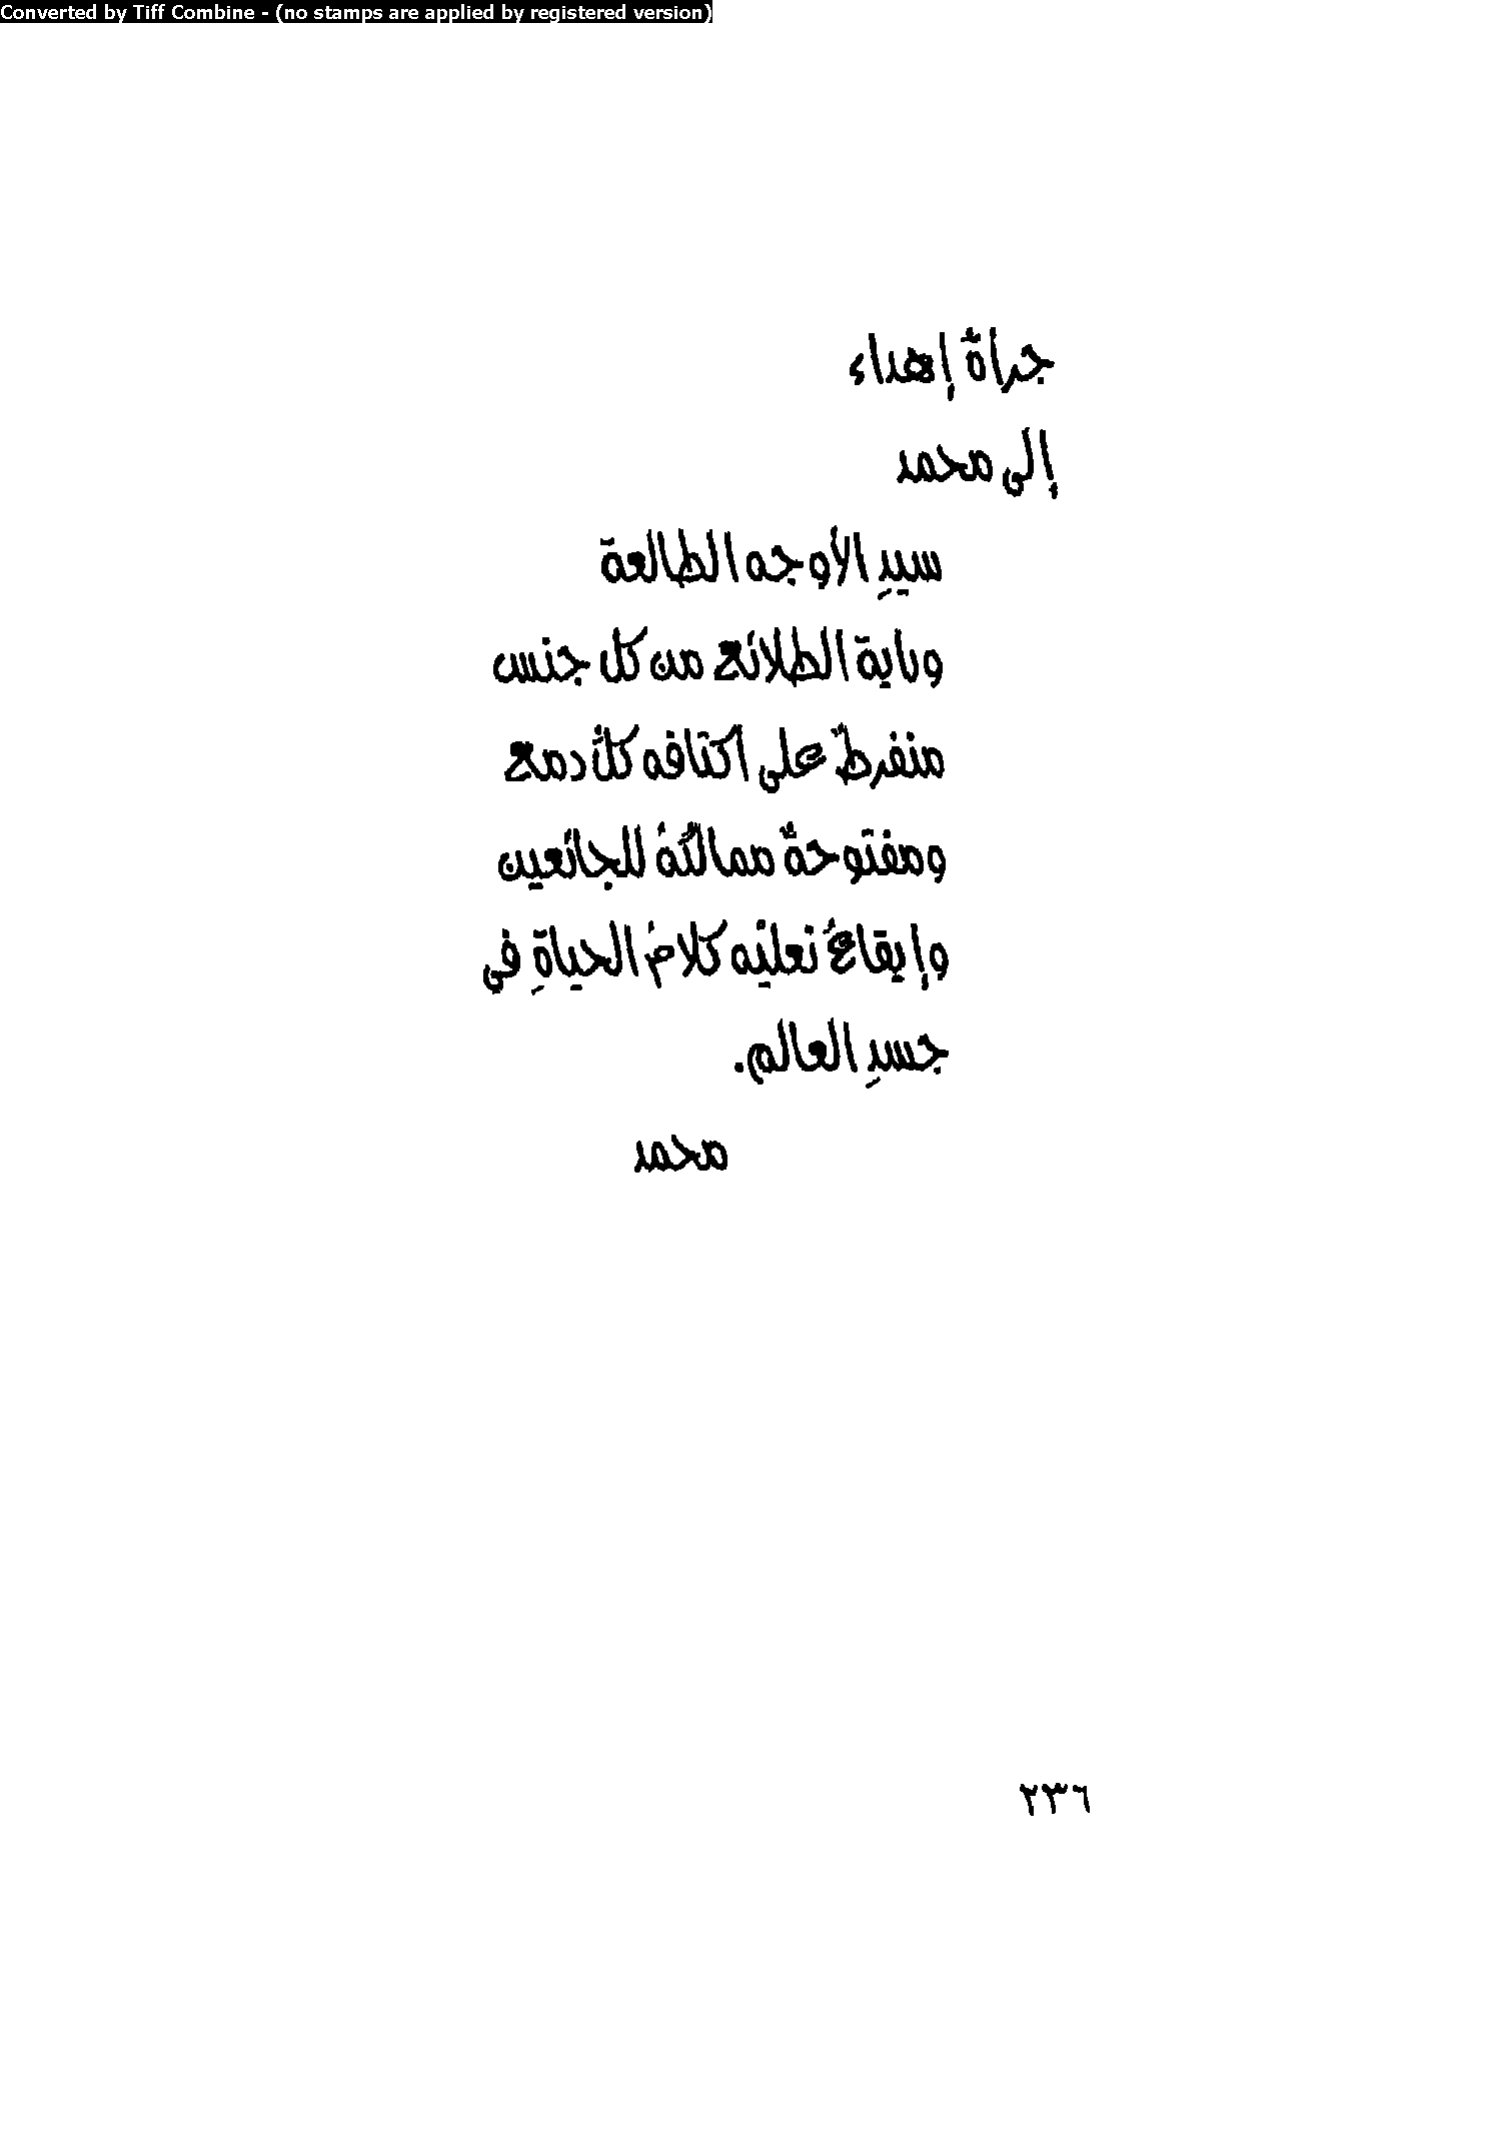 Converted by Tiff Combine - (no stamps are applied by registered version)
جرأة إهداء
إلى محمد
سيدِ الأوجه الطالعة
وراية الطلائع من كل جنس
منفرطٌ على اكتافه كلُّ دمع
ومفتوحةٌ ممالكُهُ للجائعين
وإيقاعُ نعليْه كلامُ الحياةِ في
جسدِ العالم.
محمد
٢٣٦